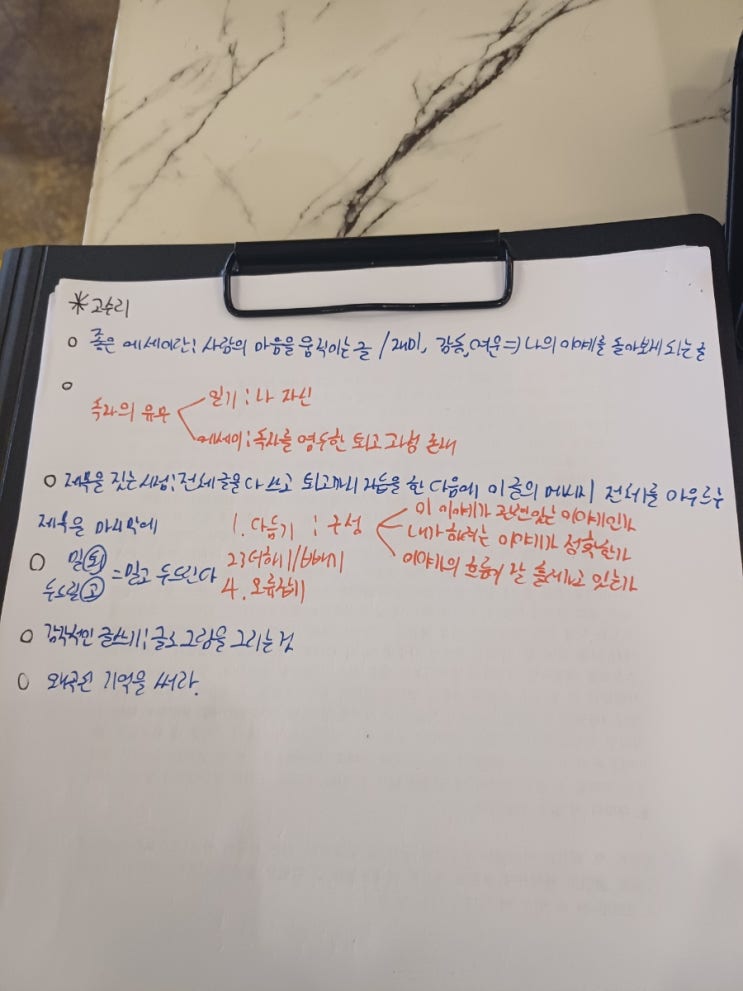 * 고수리
○ 좋은 에세이란; 사람의 마음을 움직이는 글 / 재미, 감동, 여운 => 나의 이야기를 돌아보게 되는 글
○ 독자의 유무
일기 ; 나 자신
에세이 ; 독자를 염두한 퇴고 과정 존재
○ 제목을 짓는 시점; 전체 글을 다 쓰고 퇴고까지 다듬을 한 다음에 이 글의 메시지 전체를 아우르는
제목을 마지막에
○ 밀 퇴
두드릴 고
= 밀고 두드린다
1. 다듬기 ; 구성
이 이야기가 관련있는 이야기인가
내가 하려는 이야기가 정확한가
이야기의 흐름이 잘 흘러가고 있는가
2.3 더하기/빼기
4. 오류잡기
○ 감각적인 글쓰기; 글로 그림을 그리는 것
○ 왜곡된 기억을 써라.